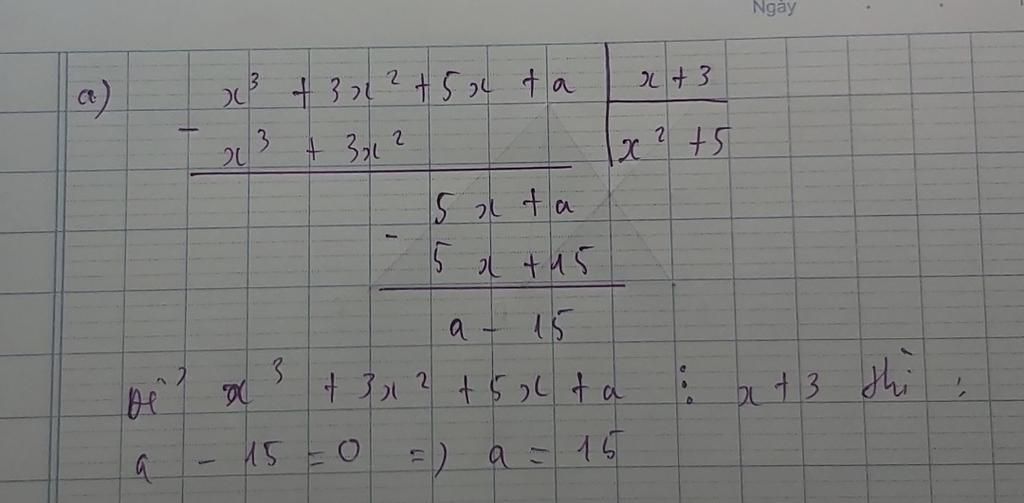 Ngày
a) x³ + 3x² + 5x + a | x + 3
- x³ + 3x² | x² + 5
5x + a
- 5x + 15
a - 15
Để x³ + 3x² + 5x + a ⋮ x + 3 thì :
a - 15 = 0 => a = 15